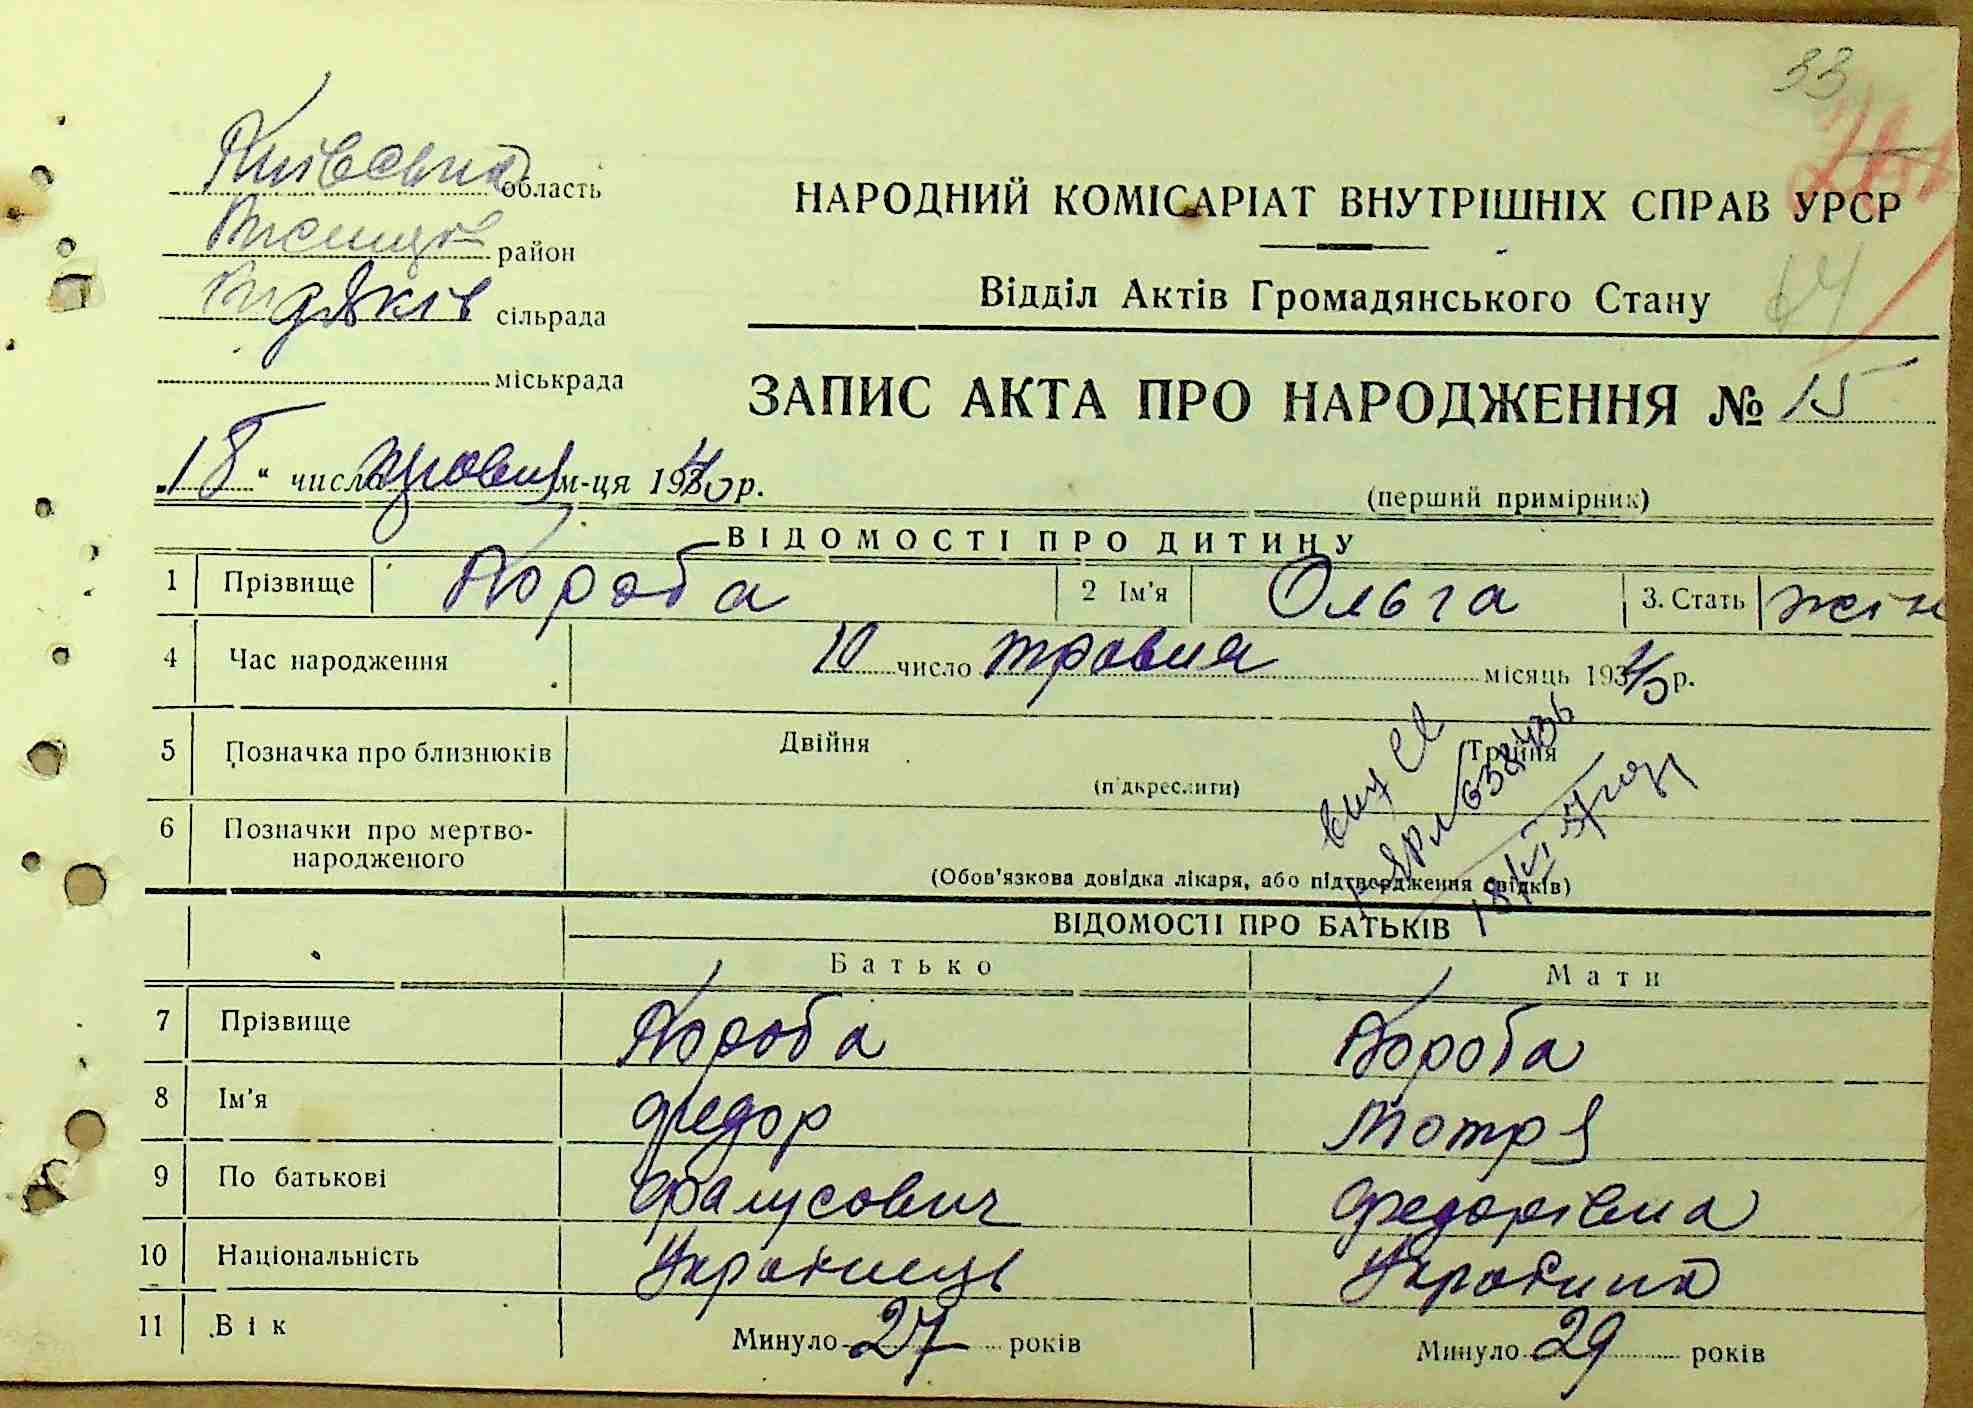 33
Київська область
район
НАРОДНИЙ КОМІСАРІАТ ВНУТРІШНІХ СПРАВ УРСР
сільрада
Відділ Актів Громадянського Стану
64
міськрада
ЗАПИС АКТА ПРО НАРОДЖЕННЯ № 15
„18“ числа травня м-ця 1940 р.
(перший примірник)
ВІДОМОСТІ ПРО ДИТИНУ
1 Прізвище Короба 2 Ім'я Ольга 3. Стать жін
4 Час народження 10 число травня місяць 1940 р.
5 Позначка про близнюків Двійня Трійня
(підкреслити)
6 Позначки про мертво-
народженого
(Обов'язкова довідка лікаря, або підтвердження свідків)
ВІДОМОСТІ ПРО БАТЬКІВ
Батько Мати
7 Прізвище Короба Короба
8 Ім'я Федор Мотря
9 По батькові Федорівна
10 Національність Українець Українка
11 Вік Минуло 27 років Минуло 29 років